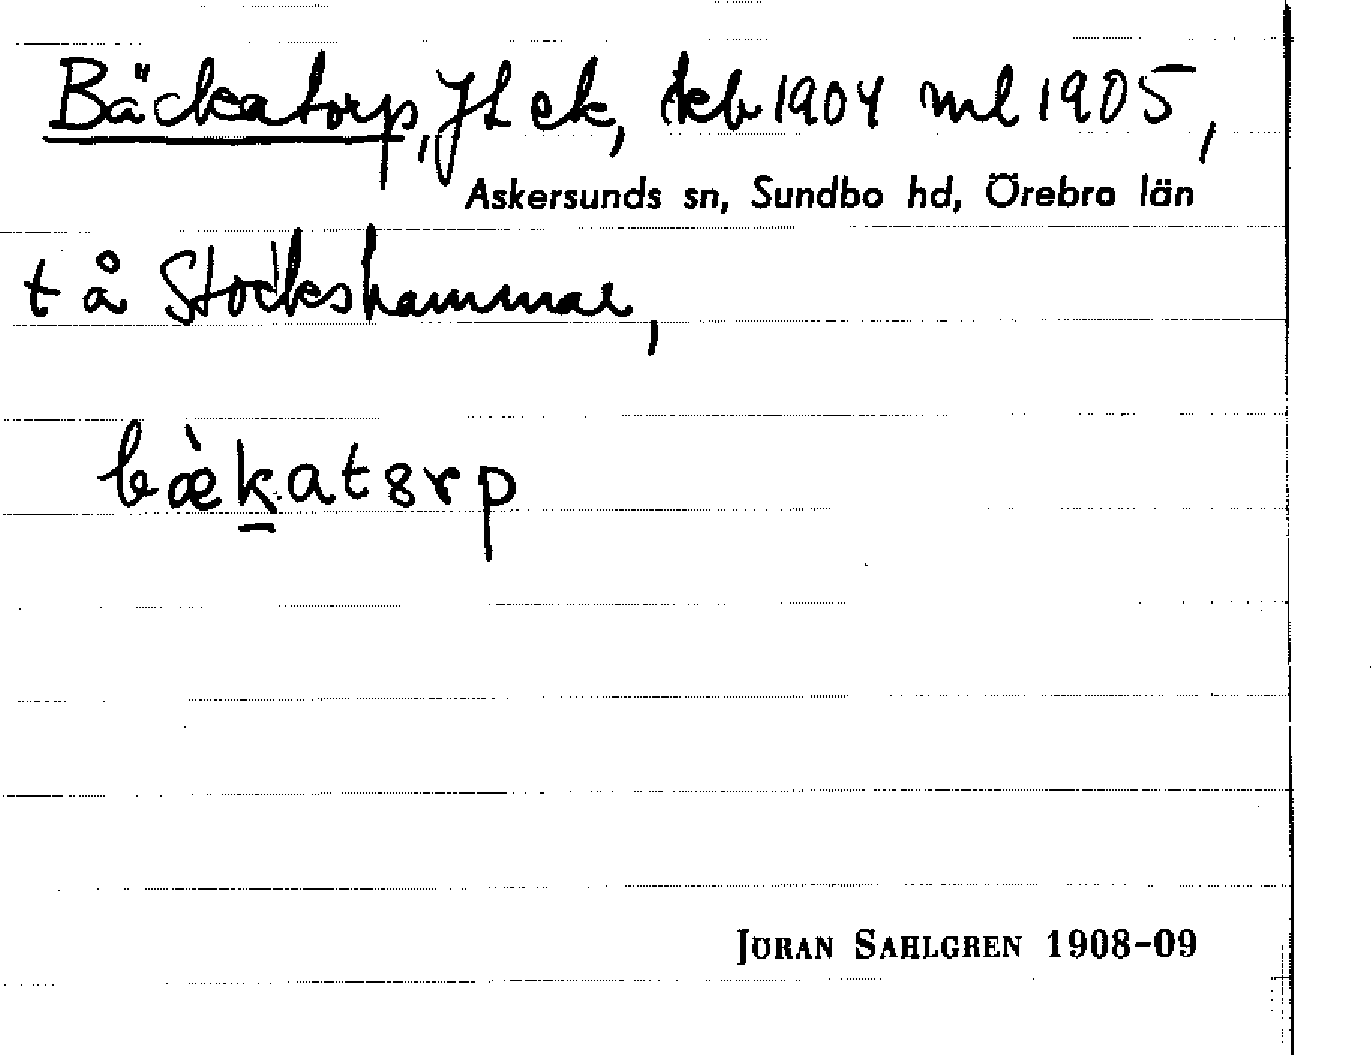 Bäckatorp, JL ek, kb 1904 ml 1905,
Askersunds sn, Sundbo hd, Örebro län
t å Stockshammar,
bæ̀k̲atȣrp
JÖRAN SAHLGREN 1908-09